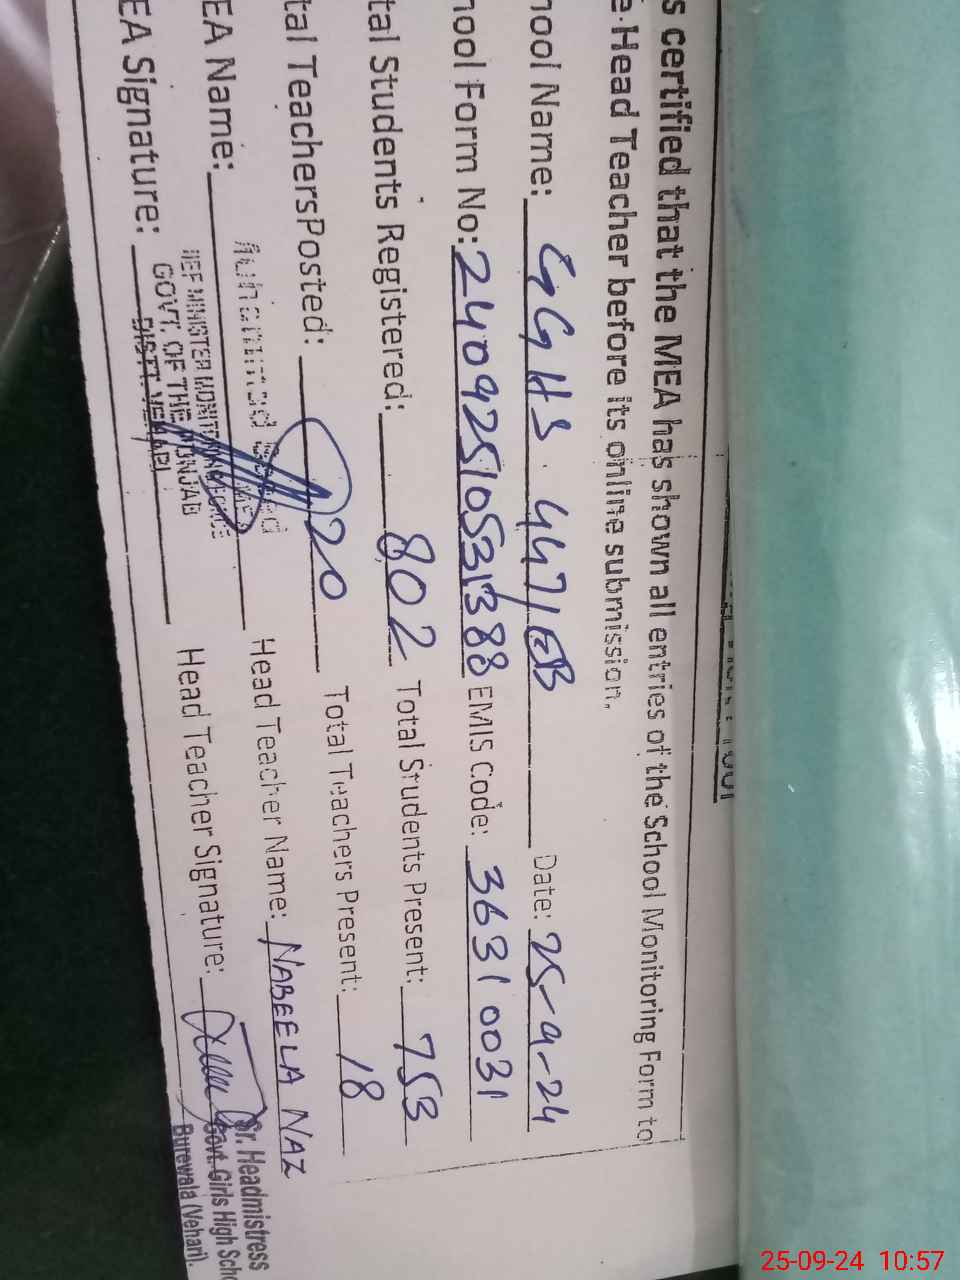 s certified that the MEA has shown all entries of the School Monitoring Form to
e Head Teacher before its online submission.
hool Name: GGHS 447/EB Date: 25-9-24
hool Form No: 24092510531388 EMIS Code: 36310031
tal Students Registered: 802 Total Students Present: 753
tal TeachersPosted: 20 Total Teachers Present: 18
EA Name: Muhammad Head Teacher Name: NABEELA NAZ
IEF MINISTER MONITORING
GOVT. OF THE PUNJAB
DISTT. VEHARI
EA Signature: Head Teacher Signature:
Sr. Headmistress
Govt. Girls High Scho
Burewala (Vehari).
25-09-24 10:57